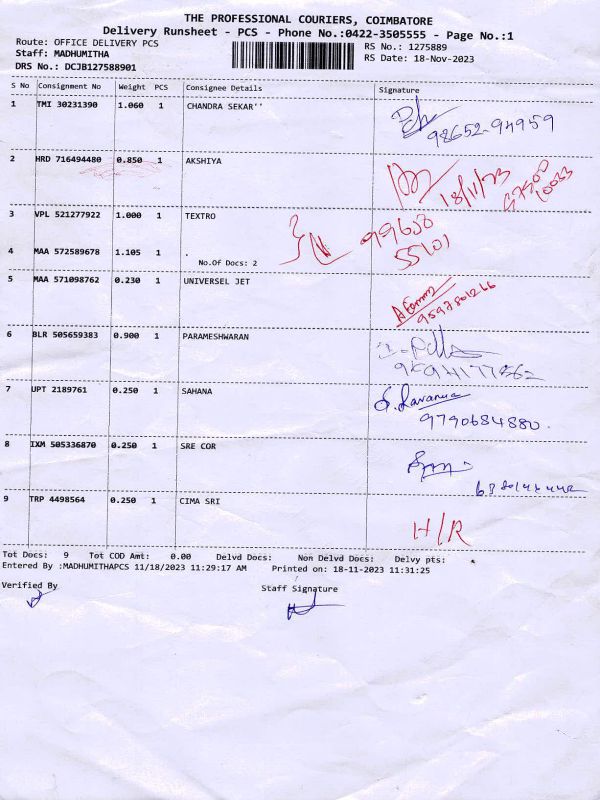 THE PROFESSIONAL COURIERS, COIMBATORE
Delivery Runsheet - PCS - Phone No.:0422-3505555 - Page No.:1
Route: OFFICE DELIVERY PCS
RS No.: 1275889
Staff: MADHUMITHA
RS Date: 18-Nov-2023
DRS No.: DCJB127588901
S No Consignment No Weight PCS Consignee Details Signature
1 TMI 30231390 1.060 1 CHANDRA SEKAR''
98652-94959
2 HRD 716494480 0.850 1 AKSHIYA
18/11/23
3 VPL 521277922 1.000 1 TEXTRO
55101
4 MAA 572589678 1.105 1 .
No.Of Docs: 2
5 MAA 571098762 0.230 1 UNIVERSEL JET
9597801266
6 BLR 505659383 0.900 1 PARAMESHWARAN
7 UPT 2189761 0.250 1 SAHANA
S. Lavanya
9790684880.
8 IXM 505336870 0.250 1 SRE COR
9 TRP 4498564 0.250 1 CIMA SRI
H/R
Tot Docs: 9 Tot COD Amt: 0.00 Delvd Docs: Non Delvd Docs: Delvy pts:
Entered By :MADHUMITHAPCS 11/18/2023 11:29:17 AM Printed on: 18-11-2023 11:31:25
Verified By Staff Signature